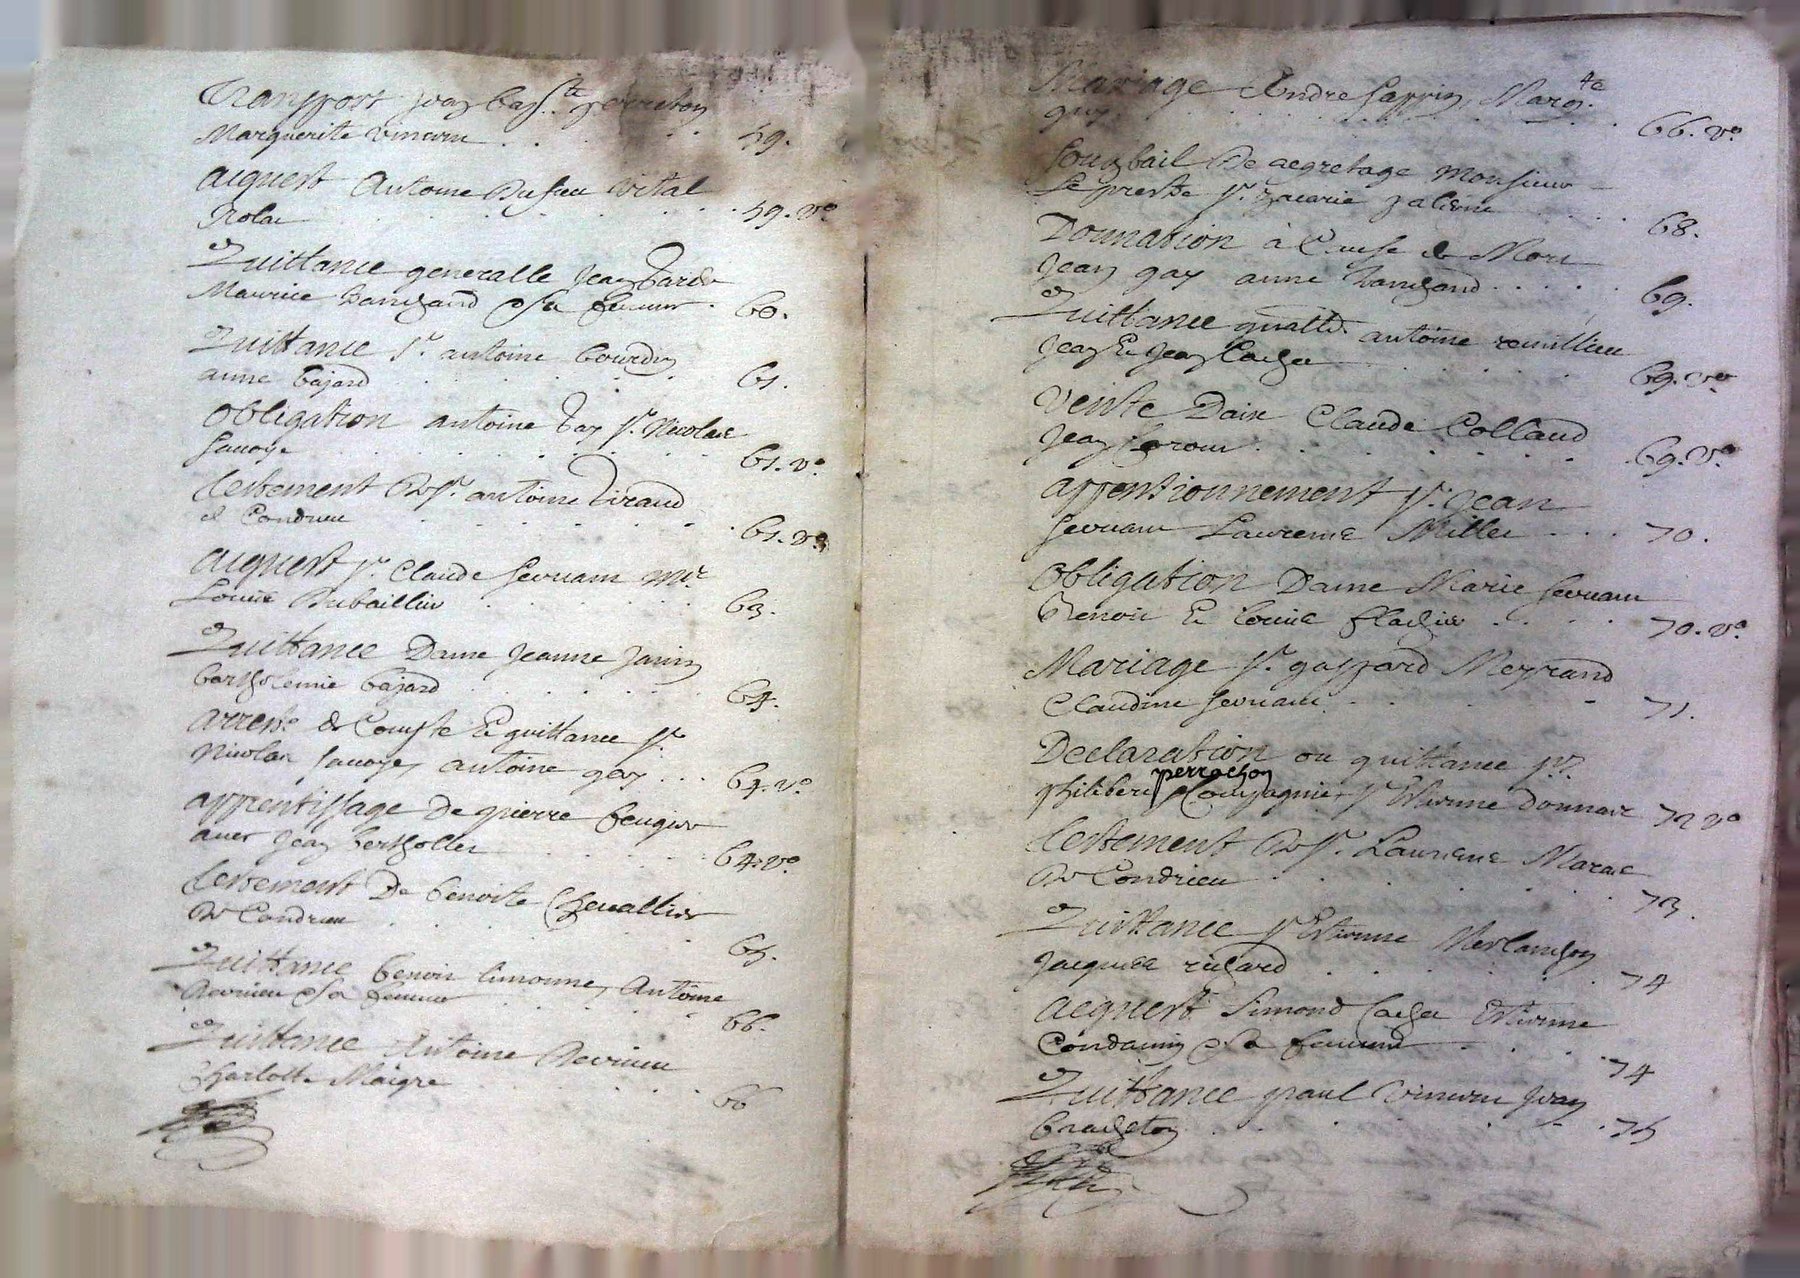 Transport Jean Bap.te perreton
Marguerite Vincen . . . 59.
Aquest Antoine Dufieu Vital
Rolac . . . 59. v°
Quittance generalle Jean
Maurice et sa femme . 60.
Quittance Sr. antoine bourdin
anne bajard . . . 61.
Obligation antoine Sr. Nicolas
Sauoye . . . 61. v°
testement antoine Tiraud
de Condrieu . . . 61. v°
Aquest Sr. Claude Seruam Mr
Louis Dubaillier . . . 63.
Quittance Dame Jeanne Janin
bartholemie bajard . . . 64.
arrest de Compte Et quittance Sr.
Nicolas Sauoye, antoine gay . . . 64. v°
apprentissage De pierre feugier
auec Jean bertholler . . . 64. v°
testement De benoiste Cheuallier
De Condrieu . . . 65.
Quittance benoir limonne, Antoine
Devrieu et sa femme . . . 66.
Quittance Antoine Devrieu
Charlotte Maigre . . . 66
Mariage Andre Sappin, Marg.te
guy . . . 66. v°
Souzbail De Monsieur
Le prestre Sr. Zacarie . . . 68.
Donnation à Cause de Mort
Jean gay anne . . . 69.
Quittance antoine remillieu
Jean Et Jean Cacher . . . 69. v°
Vente Claude Colland
Jean . . . 69. v°
appentionnement Sr. Jean
Seruam Laurence Miller . . . 70.
Obligation Dame Marie Seruam
Benoir Et Louise flacher . . . 70. v°
Mariage Sr. gaspard Meyrand
Claudine Seruam . . . 71.
Declaration ou quittance Sr.
perrochon
philibert Compagnie, Sr Etienne Donnat 72 v°
testement Sr. Laurence Marae
De Condrieu . . . 73.
Quittance Sr Etienne Merlanchon
Jacques richard . . . 74
Acquest Simond Cacher Etienne
Condamin et sa femme . . . 74
Quittance paul Vincen Jean
bracheton . . . 75